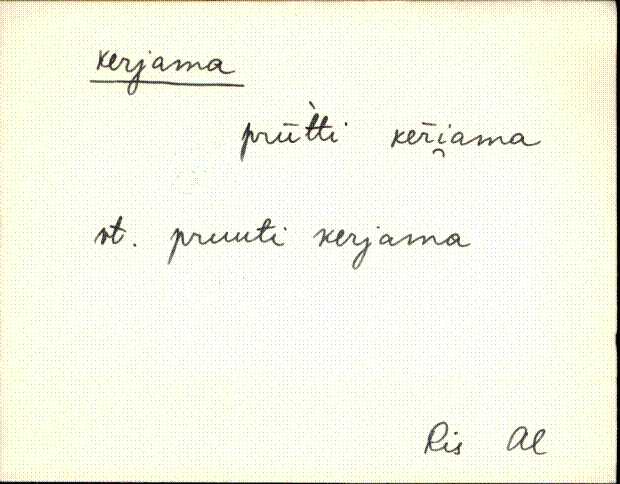 kerjama
prūt̀ti ker̄i̯ama
vt. pruuti kerjama
Ris Al